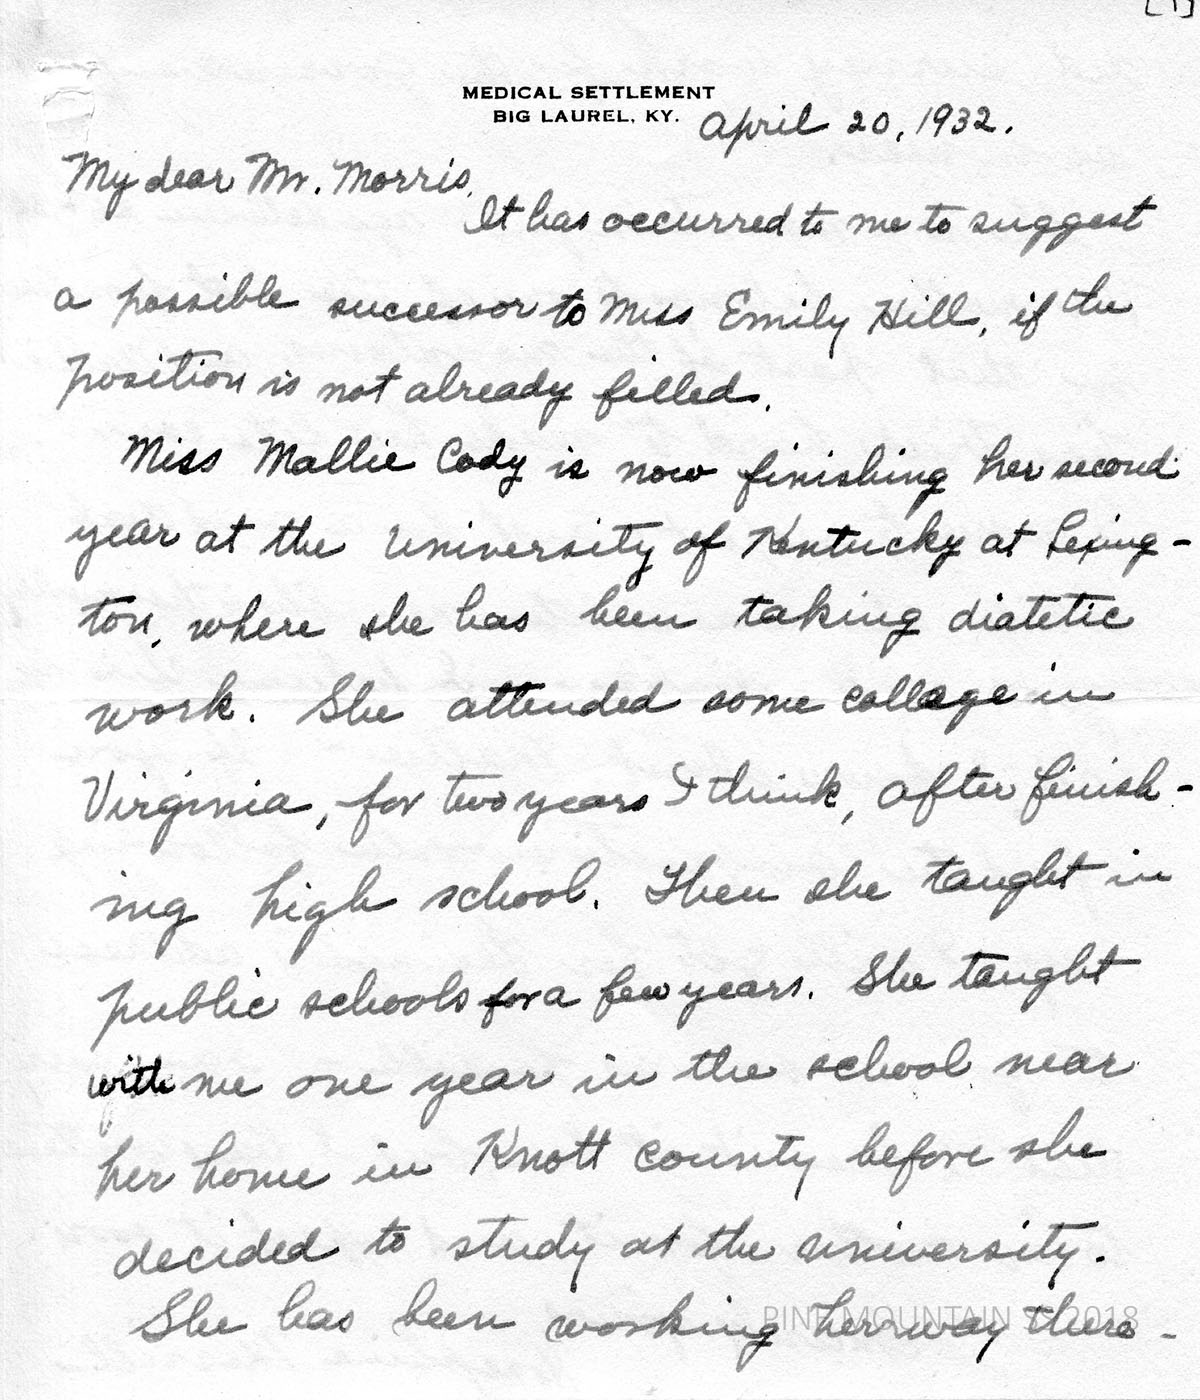 [1]
MEDICAL SETTLEMENT
BIG LAUREL, KY.
April 20, 1932.
My dear Mr. Morris,
It has occurred to me to suggest
a possible successor to Miss Emily Hill, if the
position is not already filled.
Miss Mallie Cody is now finishing her second
year at the University of Kentucky at Lexing-
ton, where she has been taking diatetic
work. She attended some college in
Virginia, for two years I think, after finish-
ing high school. Then she taught in
public schools for a few years. She taught
with me one year in the school near
her home in Knott county before she
decided to study at the university.
She has been working her way there -
PINE MOUNTAIN S 2018